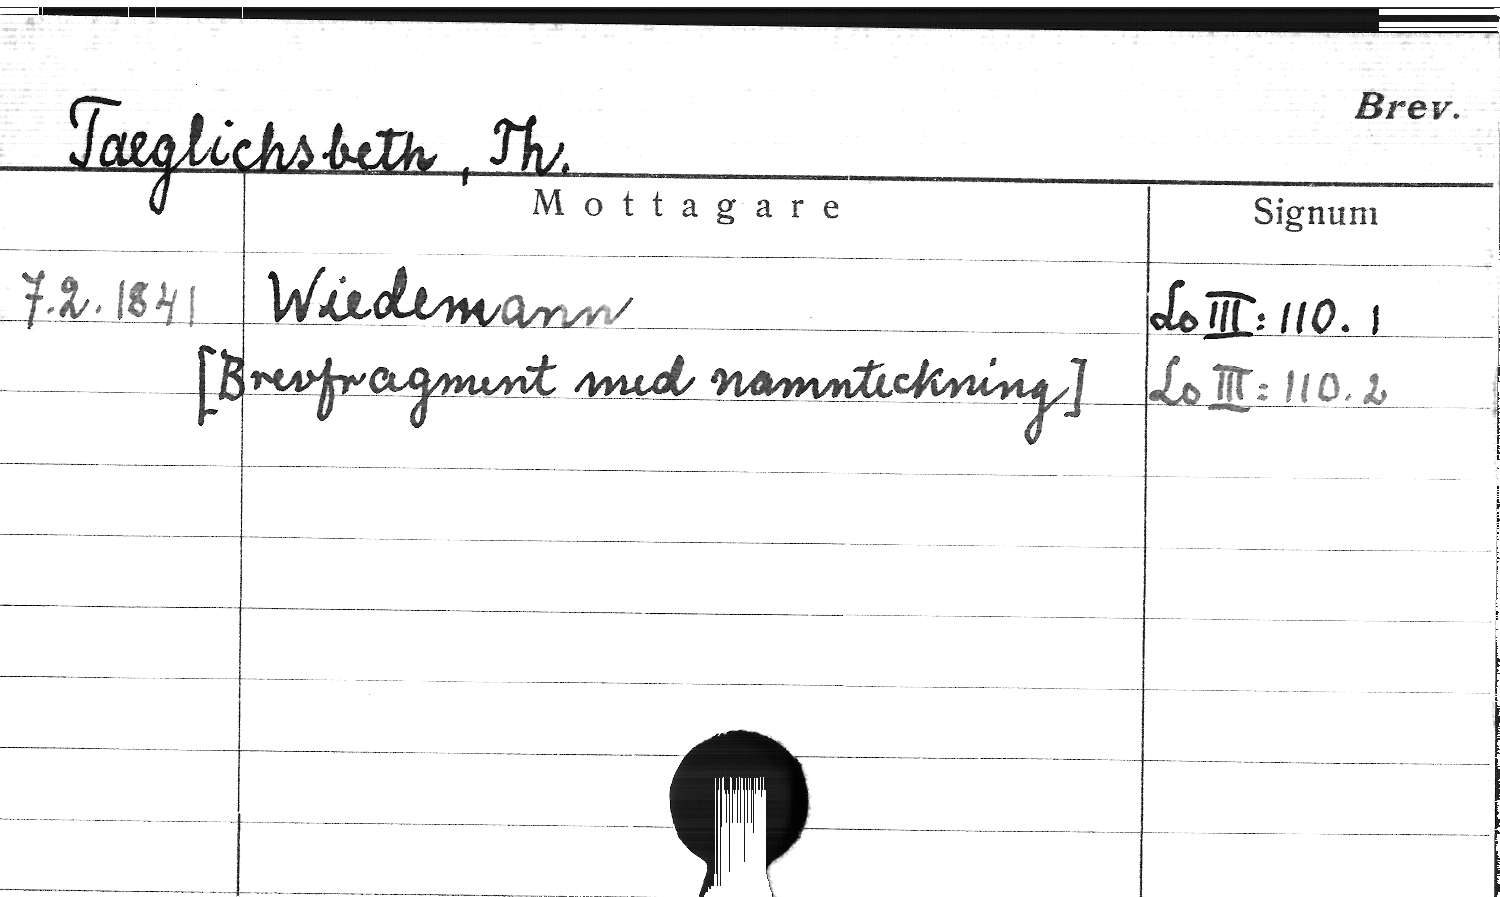 Brev.
Taeglichsbeth, Th.
Mottagare Signum
7.2.1841 Wiedemann Lo III: 110.1
[Brevfragment med namnteckning] Lo III: 110.2